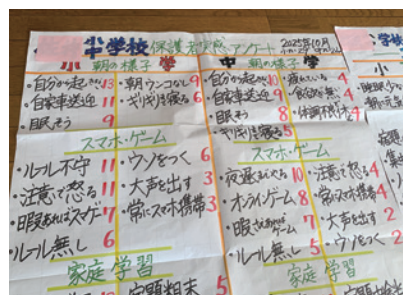 小中学校 保護者実感アンケート 2025年10月
小 朝の様子 学
・自分から起きない 13
・自家車送迎 11
・眠そう 9
・朝ウンコなし 9
・ギリギリまで寝る 6
中 朝の様子 学
・自分から起きない 10
・自家車送迎 9
・眠そう 8
・ギリギリまで寝る 5
・疲れている 4
・体調不良 4
スマホ・ゲーム
・ルール不守 11
・注意で怒る 11
・暇あればスマゲー 7
・ルール無し 6
・ウソをつく 6
・大声を出す 3
・常にスマホ携帯 3
スマホ・ゲーム
・夜遅くまでやる 10
・オンラインゲーム 8
・暇さえあればゲーム 7
・ルール無し 5
・注意で怒る 4
・常にスマホ携帯 4
・大声を出す 2
・ウソをつく 2
家庭学習
・宿題粗末 5
家庭学習
学校
小